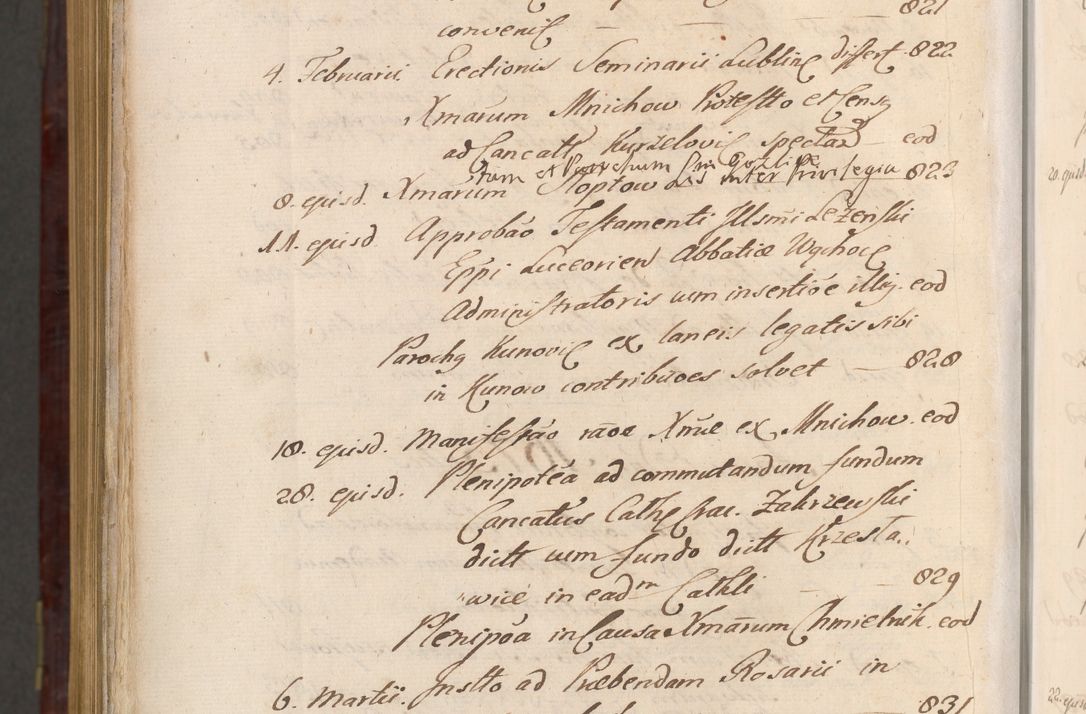 convenić — 821
4. Februarii Erectionis Seminarii Lublinć dissert. 822
Xmarum Mnichow Protestto et Cens9
ad Cancatt Kurzelović spectan — eod
8. ejusd. Xmarum Stoptow Lis inter Privilegia 823
11. ejusd. Approbão Testamenti Illsmi Leżenski
Eppi Luceorien Abbatiæ Wąchoć
Administratoris cum insertiõe illig. eod
Parochg Kunović ex laneis legatis sibi
in Kunow contribuoes solvet — 828
18. ejusd. Manifestão rãoe Xmæ ex Mnichow. eod
28. ejusd. Plenipotẽa ad commutandum fundum
Cancatus Cathę Crac. Zakrzewski
dictt cum fundo dictt Krzesta..
wice in eadm Cathli — 829
Plenipõa in Causa Xmarum Chmielnik. eod
6. Martii. Instto ad Præbendam Rosarii in
831
20. ejusd
22. ejusd